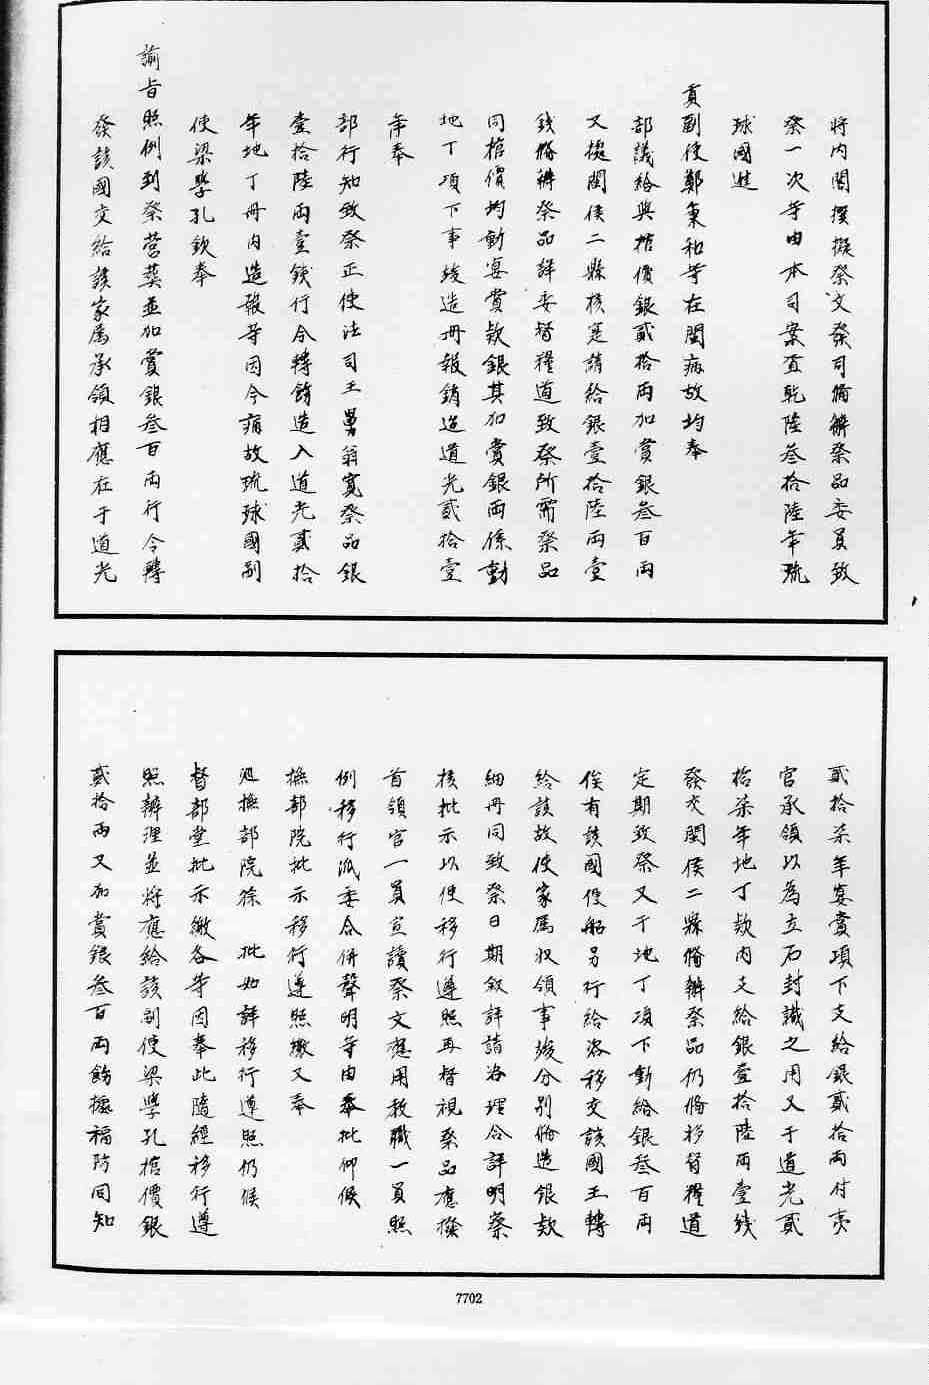 將內閣撰擬祭文發司備辦祭品委員致
祭一次等由本司案查乾隆叁拾陸年琉
球國進
貢副使鄭秉和等在閩病故均奉
部議給與棺價銀貳拾兩加賞銀叁百兩
又據閩侯二縣核定請給銀壹拾陸兩壹
錢備辦祭品詳委督糧道致祭所需祭品
同棺價均動宴賞款銀其加賞銀兩係動
地丁項下事竣造冊報銷迨道光貳拾壹
年奉
部行知致祭正使法司王舅翁寬祭品銀
壹拾陸兩壹錢行令轉飭造入道光貳拾
年地丁冊內造報等因今病故琉球國副
使梁學孔欽奉
諭旨照例到祭營葬並加賞銀叁百兩行令轉
發該國交給該家屬承領相應在于道光
貳拾柒年宴賞項下支給銀貳拾兩付夷
官承領以為立石封識之用又于道光貳
拾柒年地丁款內支給銀壹拾陸兩壹錢
發交閩侯二縣備辦祭品仍備移督糧道
定期致祭又于地丁項下動給銀叁百兩
俟有該國便船另行給咨移交該國王轉
給該故使家屬收領事竣分別備造銀款
細冊同致祭日期敘詳請咨理合詳明察
核批示以便移行遵照再督視祭品應撥
首領官一員宣讀祭文應用教職一員照
例移行派委合併聲明等由奉批仰候
撫部院批示移行遵照繳又奉
巡撫部院徐　批如詳移行遵照仍候
督部堂批示繳各等因奉此隨經移行遵
照辦理並將應給該副使梁學孔棺價銀
貳拾兩又加賞銀叁百兩飭據福防同知
7702